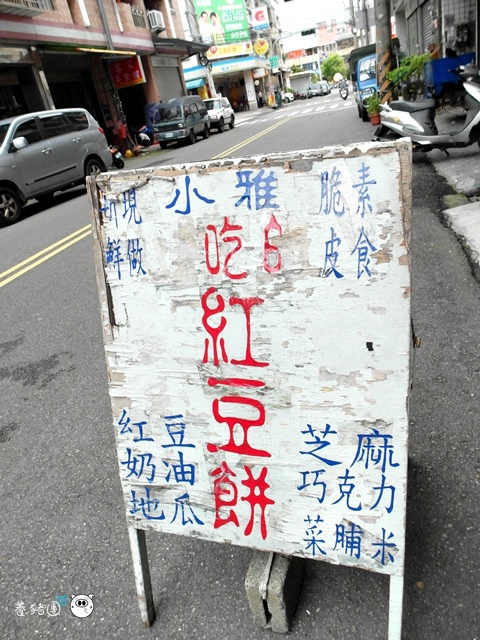 小雅
現做
新鮮
素食
脆皮
吃6
紅豆餅
紅豆
奶油
地瓜
芝麻
巧克力
菜脯米
養豬團